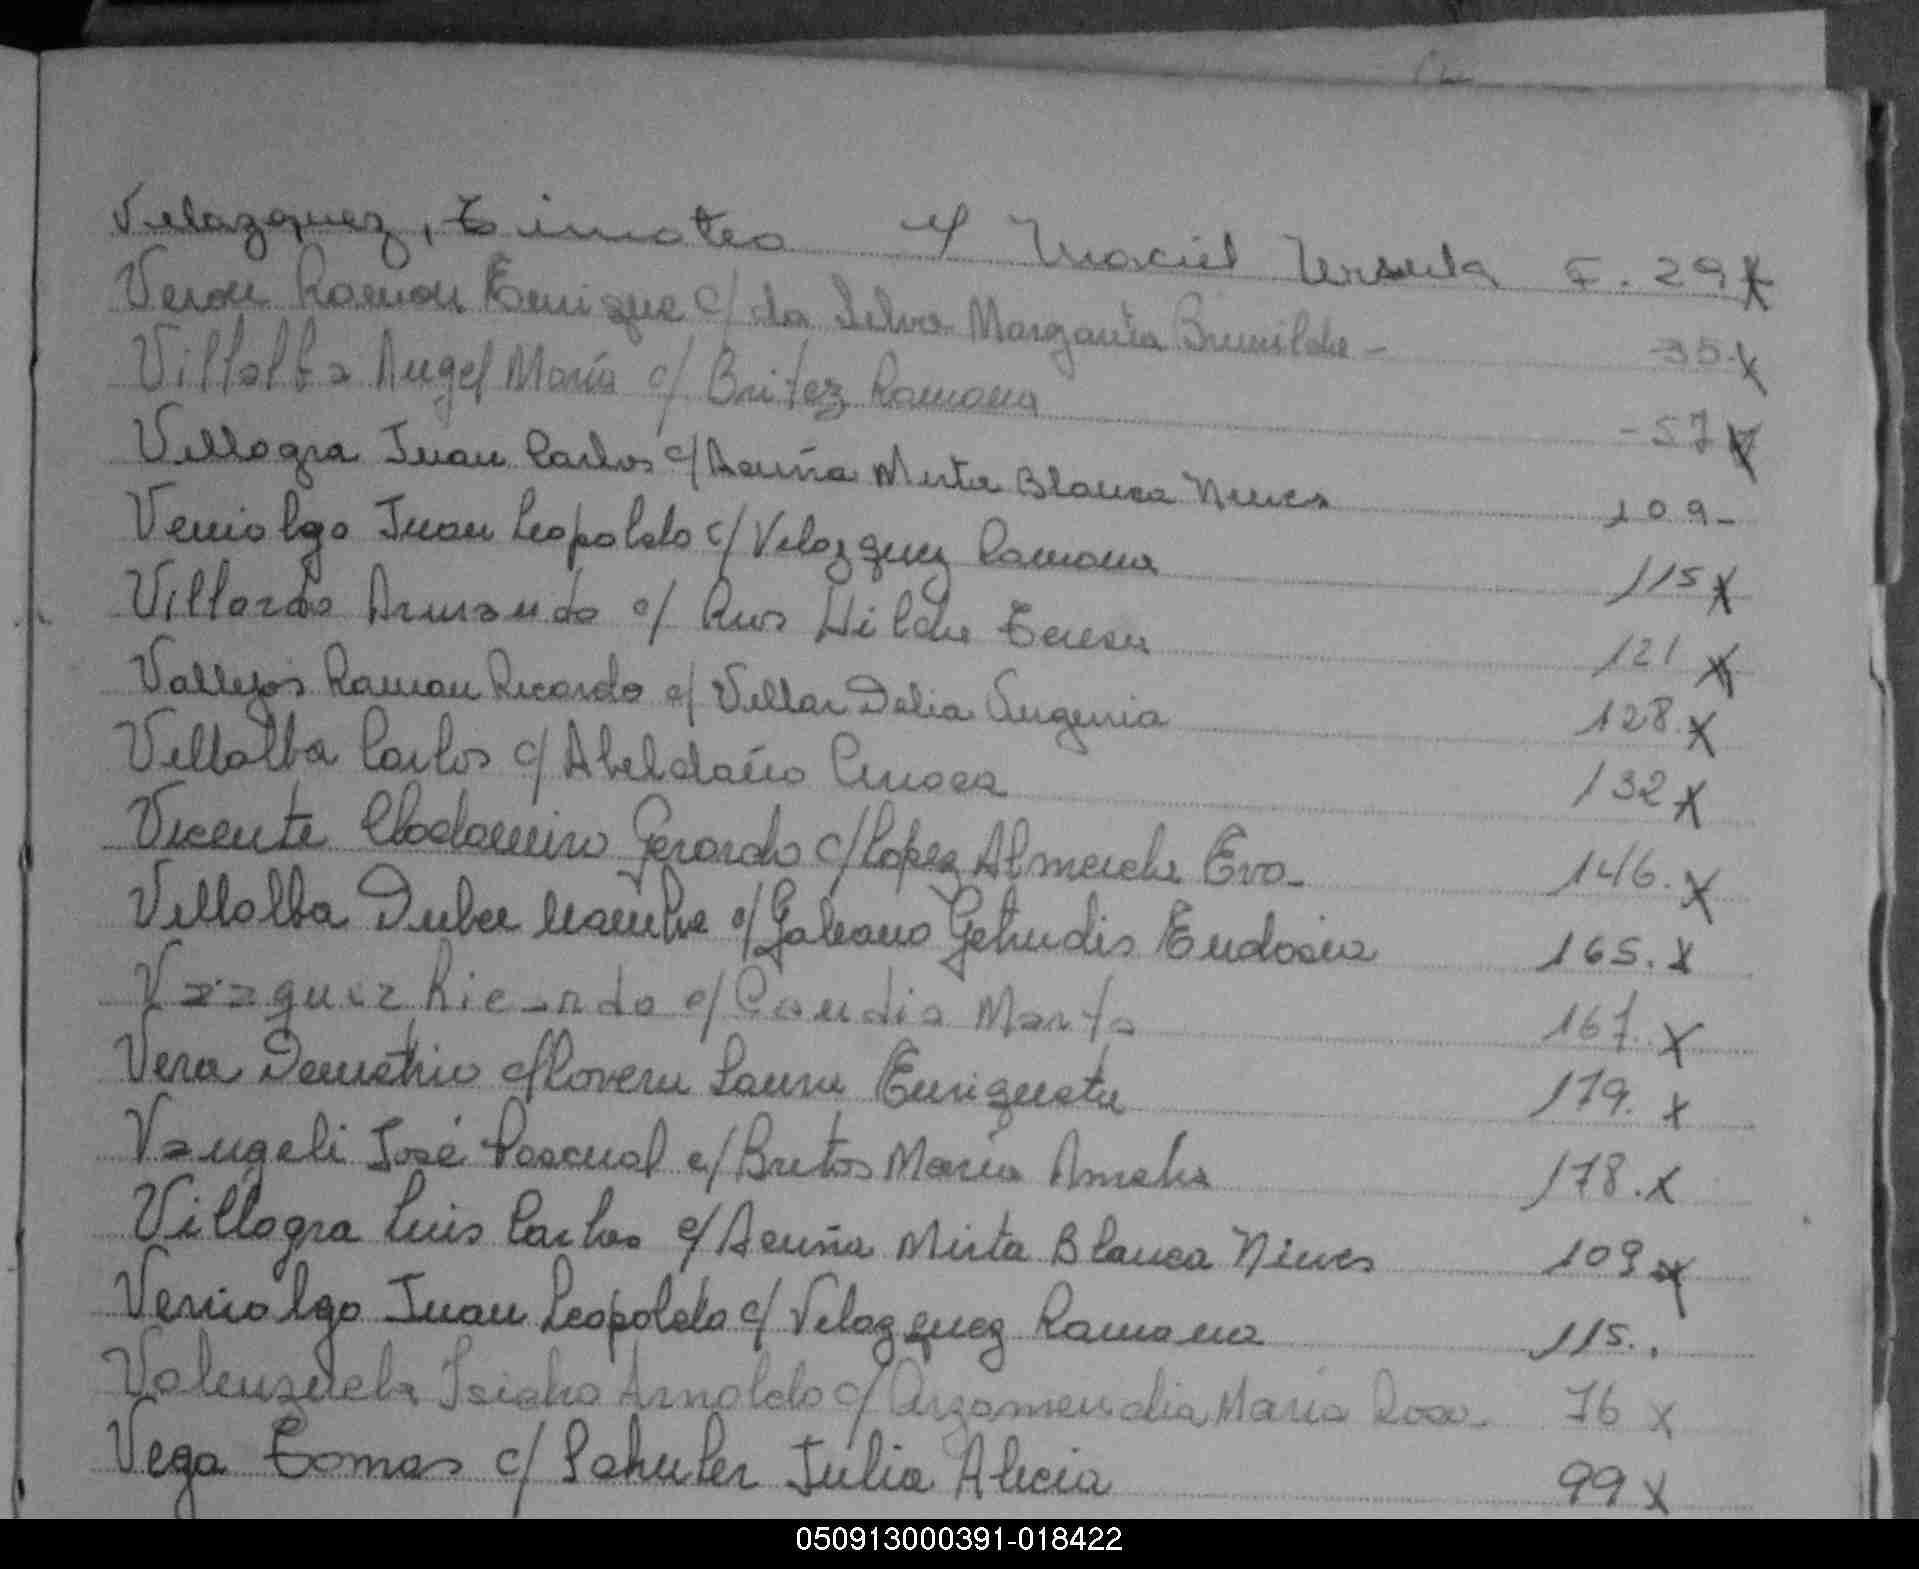 Velazquez, Timoteo c/ Maciel Ursula F. 29 x
Veron Ramon Enrique c/ da Silva Margarita Brunilda - 35 x
Villalba Angel María c/ Britez Ramona - 57 x
Villagra Juan Carlos c/ Acuña Mirta Blanca Nieves 109 -
Verniolgo Juan Leopoldo c/ Velazquez Ramona 115 x
Villordo Armando c/ Rios Hilda Teresa 121 x
Vallejos Ramon Ricardo c/ Villar Delia Eugenia 128. x
Villalba Carlos c/ Abeldaño 132 x
Vicente Clodomiro Gerardo c/ Lopez Almeida Eva - 146. x
Villalba c/ Galeano Getrudis Eudosia 165. x
Vazquez Ricardo c/ Marta 167. x
Vera Demetrio c/ Lovera Laura Enriqueta 179. x
Vangeli José Pascual c/ Britos María Amelia 178. x
Villagra Luis Carlos c/ Acuña Mirta Blanca Nieves 109 x
Verniolgo Juan Leopoldo c/ Velazquez Ramona 115..
Valenzuela Isidro Arnoldo c/ Arzamendia María Rosa - 76 x
Vega Tomas c/ Sahuler Julia Alicia 99 x
050913000391-018422